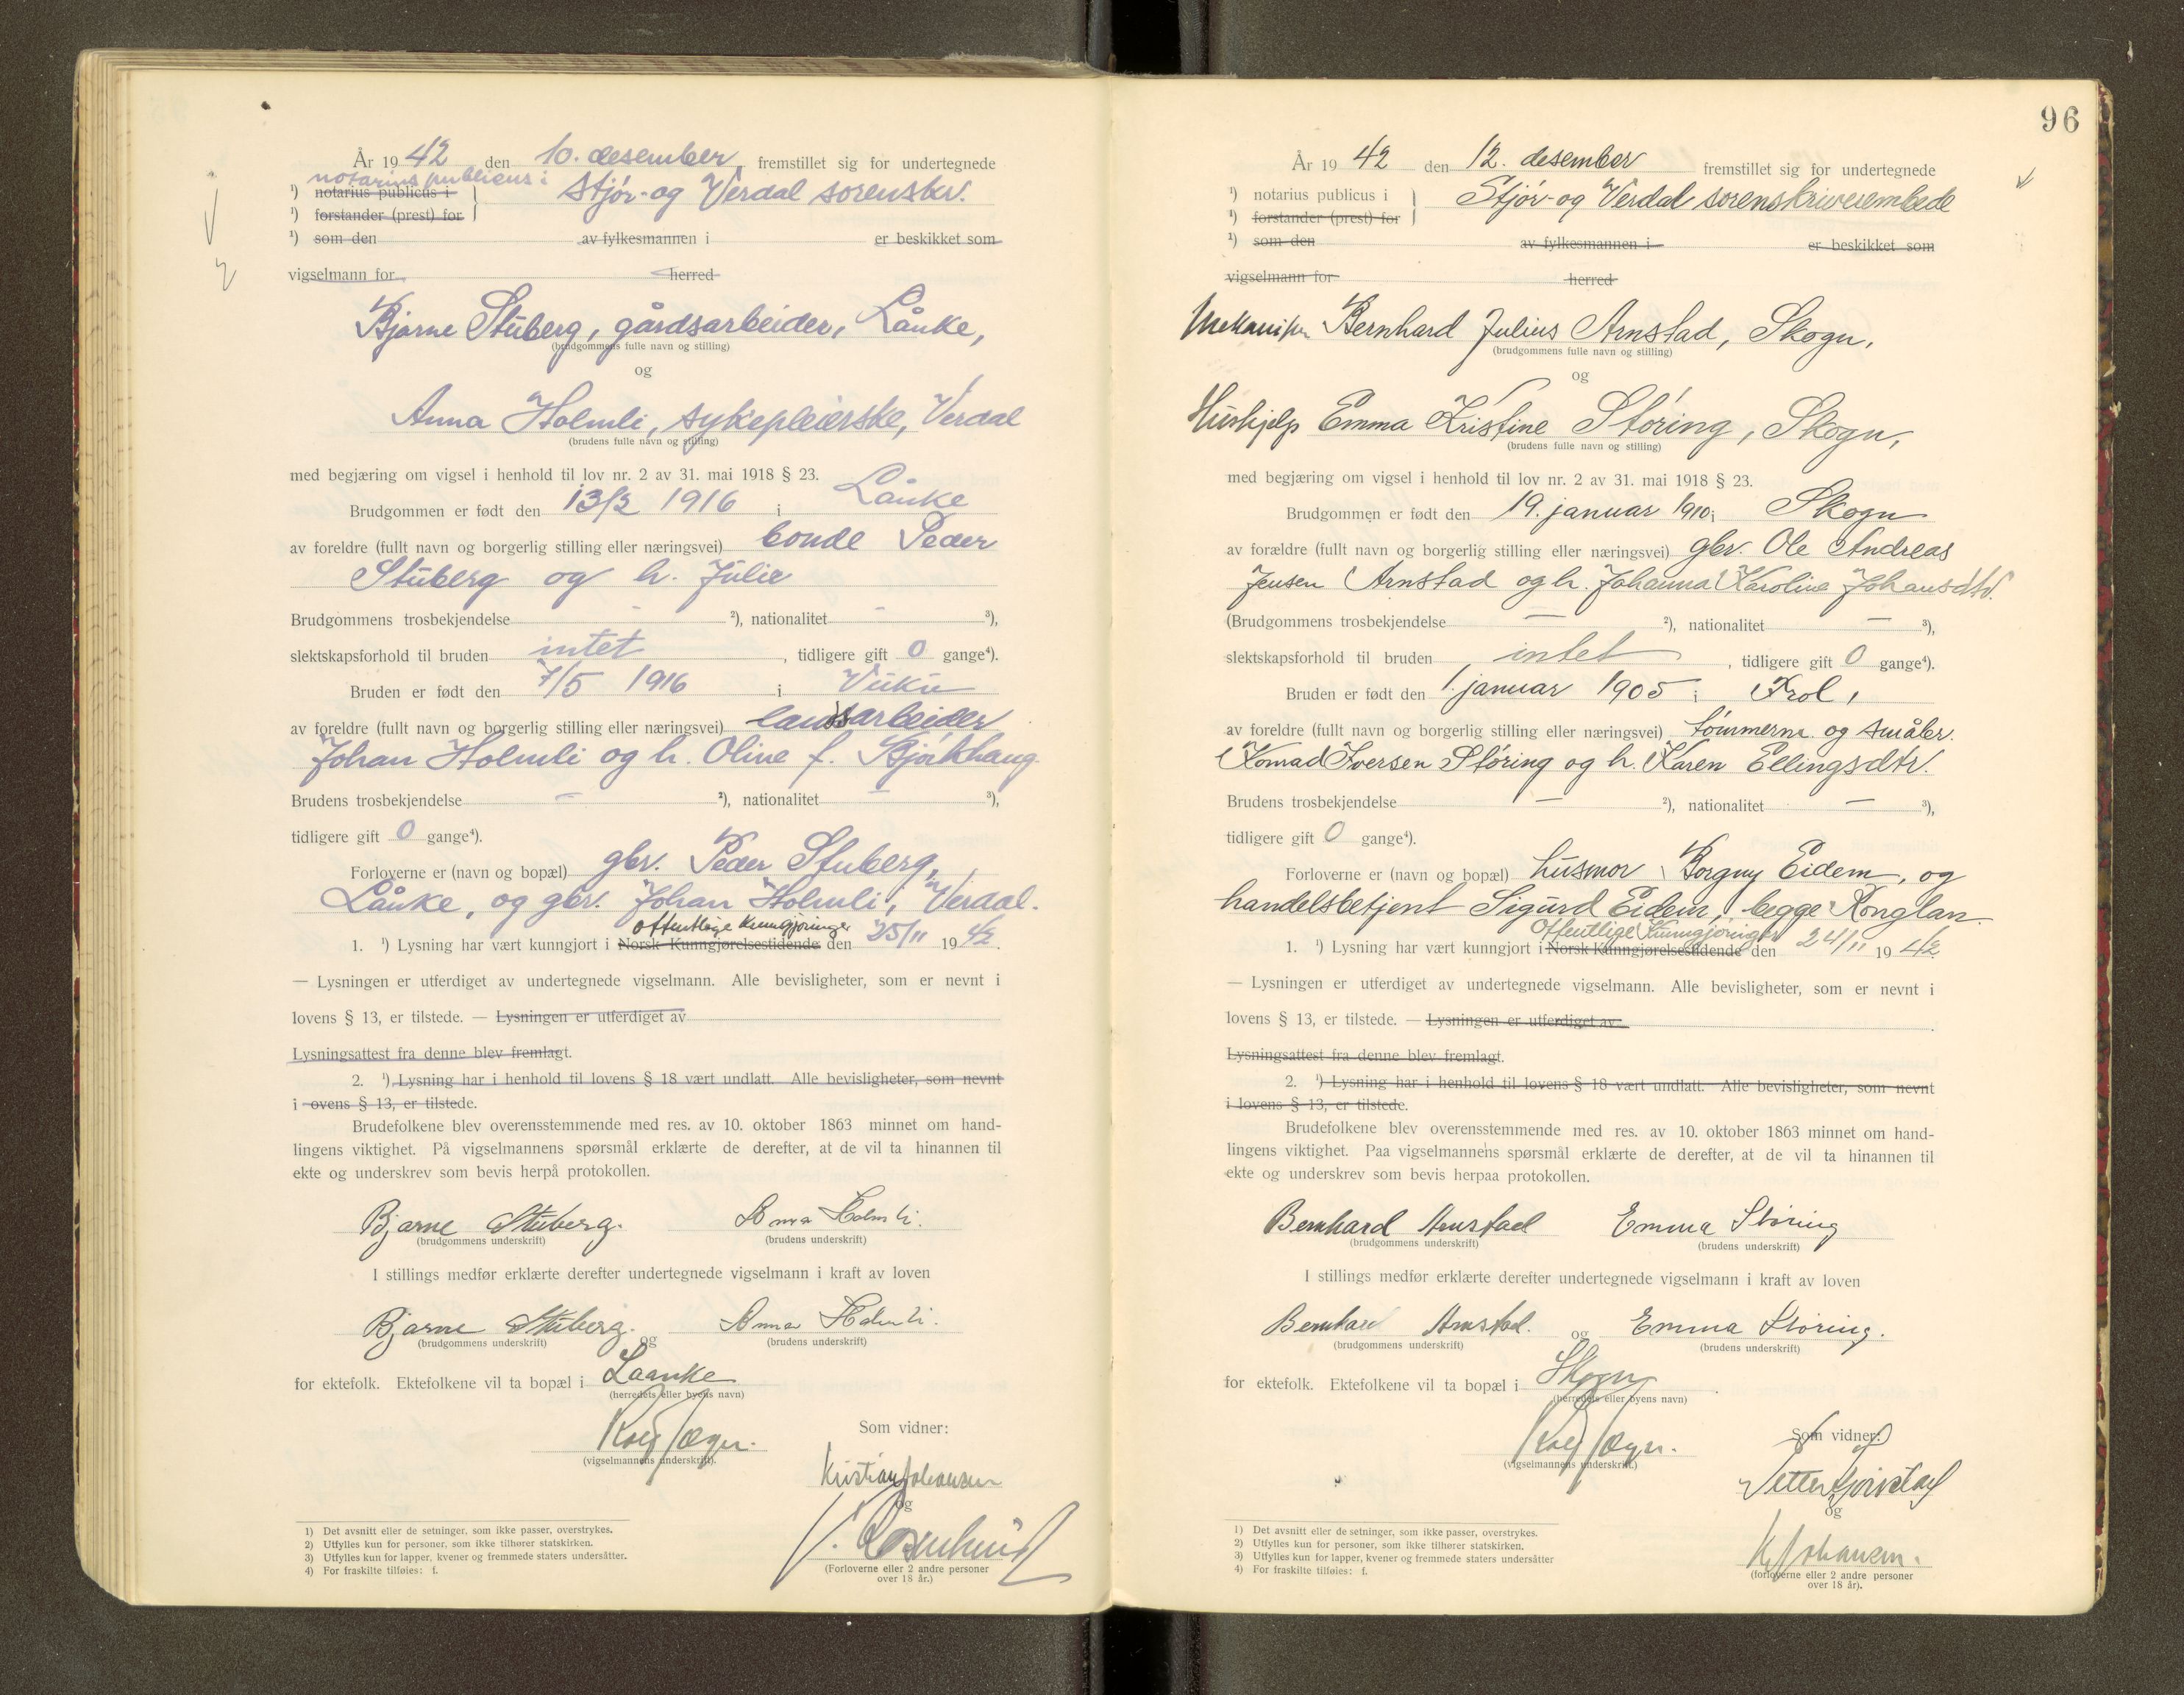 År 1942 den 10. desember fremstillet sig for undertegnede
notarius publicus i
¹) notarius publicus i } Stjør- og Verdal sorenskr.
¹) forstander (prest) for
¹) som den av fylkesmannen i er beskikket som
vigselmann for herred
Bjarne Stuberg, gårdsarbeider, Lånke,
(brudgommens fulle navn og stilling)
og
Anna Holmli, sykepleierske, Verdal
(brudens fulle navn og stilling)
med begjæring om vigsel i henhold til lov nr. 2 av 31. mai 1918 § 23.
Brudgommen er født den 13/2 1916 i Lånke
av foreldre (fullt navn og borgerlig stilling eller næringsvei) bonde Peder
Stuberg og h. Julie
Brudgommens trosbekjendelse - ²), nationalitet - ³),
slektskapsforhold til bruden intet, tidligere gift 0 gange⁴).
Bruden er født den 7/5 1916 i Vuku
av foreldre (fullt navn og borgerlig stilling eller næringsvei) landsarbeider
Johan Holmli og h. Oline f. Bjørkhaug
Brudens trosbekjendelse — ²), nationalitet — ³),
tidligere gift 0 gange⁴).
Forloverne er (navn og bopæl) gbr. Peder Stuberg,
Lånke, og gbr. Johan Holmli, Verdal.
offentlige kunngjøringer
1. ¹) Lysning har vært kunngjort i Norsk Kunngjørelsestidende den 25/11 1942.
— Lysningen er utferdiget av undertegnede vigselmann. Alle bevisligheter, som er nevnt i
lovens § 13, er tilstede. — Lysningen er utferdiget av
Lysningsattest fra denne blev fremlagt.
2. ¹) Lysning har i henhold til lovens § 18 vært undlatt. Alle bevisligheter, som nevnt
i ovens § 13, er tilstede.
Brudefolkene blev overensstemmende med res. av 10. oktober 1863 minnet om hand-
lingens viktighet. På vigselmannens spørsmål erklærte de derefter, at de vil ta hinannen til
ekte og underskrev som bevis herpå protokollen.
Bjarne Stuberg. Anna Holmli.
(brudgommens underskrift) (brudens underskrift)
I stillings medfør erklærte derefter undertegnede vigselmann i kraft av loven
Bjarne Stuberg. og Anna Holmli.
(brudgommens underskrift) (brudens underskrift)
for ektefolk. Ektefolkene vil ta bopæl i Laanke
(herredets eller byens navn)
Som vidner:
(vigselmannens underskrift).
Kristian Johansen
og
(Forloverne eller 2 andre personer
over 18 år.)
1) Det avsnitt eller de setninger, som ikke passer, overstrykes.
2) Utfylles kun for personer, som ikke tilhører statskirken.
3) Utfylles kun for lapper, kvener og fremmede staters undersåtter.
4) For fraskilte tilføies: f.
96
År 1942 den 12. desember fremstillet sig for undertegnede
¹) notarius publicus i } Stjør- og Verdal sorenskriverembede
¹) forstander (prest) for
¹) som den av fylkesmannen i er beskikket som
vigselmann for herred
Mekaniker Bernhard Julius Arnstad, Skogn,
(brudgommens fulle navn og stilling)
og
Hushjelp Emma Kristine Støring, Skogn,
(brudens fulle navn og stilling)
med begjæring om vigsel i henhold til lov nr. 2 av 31. mai 1918 § 23.
Brudgommen er født den 19. januar 1910 i Skogn
av forældre (fullt navn og borgerlig stilling eller næringsvei) gbr. Ole Andreas
Jensen Arnstad og h. Johanna Karoline Johansdtr.
(Brudgommens trosbekjendelse — ²), nationalitet — ³),
slektskapsforhold til bruden, intet, tidligere gift 0 gange⁴).
Bruden er født den 1. januar 1905 i Frol,
av foreldre (fullt navn og borgerlig stilling eller næringsvei) tømmerm. og småbr.
Konrad Iversen Støring og h. Karen Ellingsdtr.
Brudens trosbekjendelse — ²), nationalitet — ³),
tidligere gift 0 gange⁴).
Forloverne er (navn og bopæl) husmor Borgny Eidem, og
handelsbetjent Sigurd Eidem, begge Ronglan
Offentlige Kunngjøringer
1. ¹) Lysning har vært kunngjort i Norsk Kunngjørelsestidende den 24/11 1942.
— Lysningen er utferdiget av undertegnede vigselmann. Alle bevisligheter, som er nevnt i
lovens § 13, er tilstede. — Lysningen er utferdiget av
Lysningsattest fra denne blev fremlagt.
2. ¹) Lysning har i henhold til lovens § 18 vært undlatt. Alle bevisligheter, som nevnt
i lovens § 13, er tilstede.
Brudefolkene blev overensstemmende med res. av 10. oktober 1863 minnet om hand-
lingens viktighet. Paa vigselmannens spørsmål erklærte de derefter, at de vil ta hinannen til
ekte og underskrev som bevis herpaa protokollen.
Bernhard Arnstad Emma Støring
(brudgommens underskrift) (brudens underskrift)
I stillings medfør erklærte derefter undertegnede vigselmann i kraft av loven
Bernhard Arnstad. og Emma Støring.
(brudgommens underskrift) (brudens underskrift)
for ektefolk. Ektefolkene vil ta bopæl i Skogn
(herredets eller byens navn)
Som vidner:
(vigselmannens underskrift.)
og
K. Johansen.
(forloverne eller 2 andre personer
over 18 år).
1) Det avsnitt eller de setninger, som ikke passer, overstrykes.
2) Utfylles kun for personer, som ikke tilhører statskirken.
3) Utfylles kun for lapper, kvener og fremmede staters undersåtter
4) For fraskilte tilføies: f.